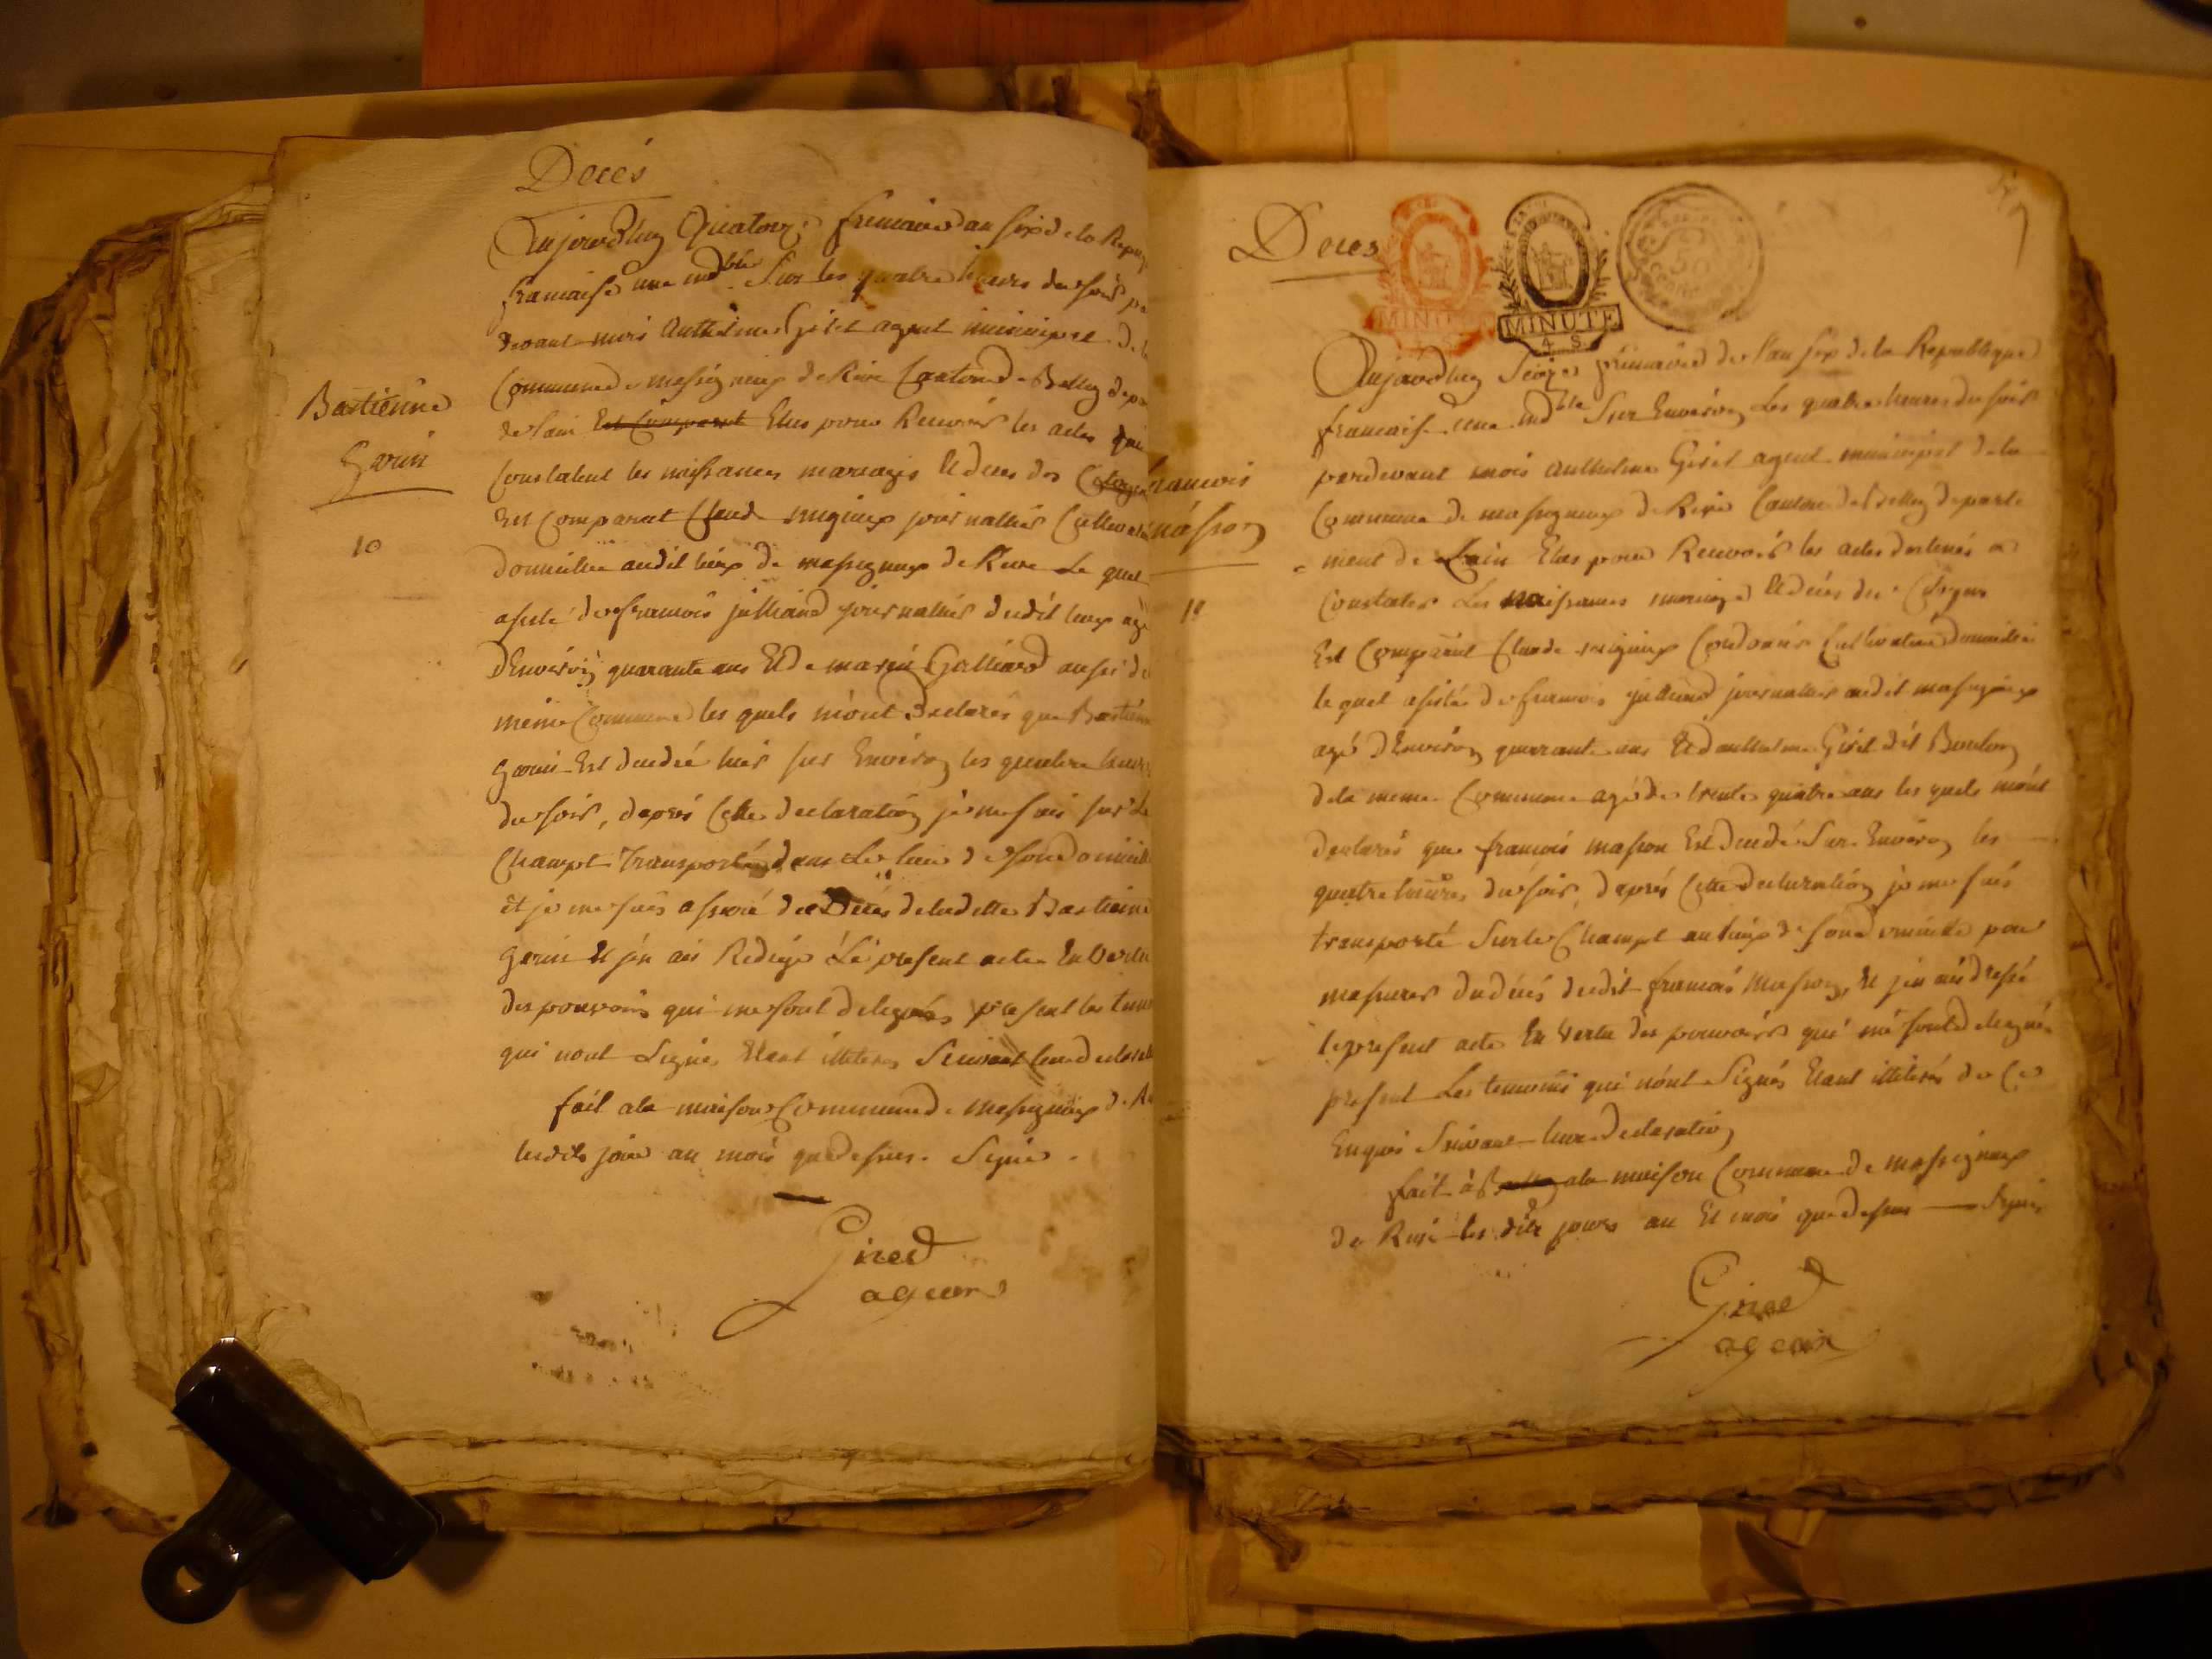 Decés
Aujourdhuy Quatorze frimaire an six de la Repub
francaise une indble Sur les quatre heures du soir pa
devant mois Anthelme Giret agent municipal de la
Commune de massigneux de Rive Canton de Belley depar
de lain Est Comparant Elus pour Recevoir les actes qui
Constatent les naissances mariages Et deces des Citoyens
Est Comparut Claude migieux journallier Cultivateur
Domicillie audit lieux de massigneux de Rive Le quel
assisté de francois julliand journallier dudit lieux agé
D'Environ quarante ans Et de Galliard aussi de
meme Commune les quels m'ont Declares que Bastienne
Garin Est decedée hier sur Environ les quatre heures
du soir, d'aprés Cette declaration je me suis sur Le
Champt Transporté dans Le lieu de son domicille
et je me suis assuré de Decés deladitte Bastienne
Garin Et j'en ais Redigé Le present acte En Vertu
des pouvoirs qui me sont delegués present les temoins
qui nont Signés Etant illiterés Suivant leur declaration
fait ala maison Commune de Massigneux de
lesdits jour an mois que dessus. Signé.
Gired
agean
Bastienne
Garin
10
Deces
MINUTE
MINUTE
4 S.
50
Centimes
Aujourdhuy Seize frimaire de l'an six de la Republique
francaise une indble Sur Environ Les quatre heures du soir
pardevant mois Anthelme Giret agent municipal de la
Commune de massigneux de Rive Canton de Belley departe
ment de Lain Elus pour Recevoir les actes destinés a
Constater Les naissances mariage Et decés des Citoyens
Est Comparut Claude migieux Cordonnier Cultivateur domicillié
le quel assisté de francois julliand journallier audit massigneux
agé D'Environ quarante ans Et d'anthelme Giret dit Boulon
dela meme Commune agé de trente quatre ans les quels m'ont
declarés que francois masson Est decedé Sur Environ les
quatre heures du soir, d'aprés Cette declaration je me suis
transporté Sur le Champt au lieux de son domicille pour
massurer du decés dudit francois Masson, Et j'en ais dressé
le present acte En Vertu des pouvoirs qui me sont delegués
present Les temoins qui n'ont Signés Etant illiterés de Ce
Enquis Suivant leur Declaration
fait à ala maison Commune de massigneux
de Rive les dits jours an Et mois que dessus Signé
Gired
agean
francois
masson